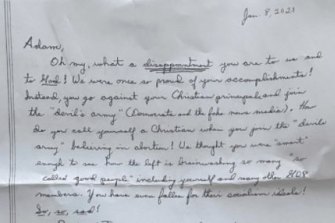 Jan. 8, 2021
Adam,
Oh my, what a disappointment you are to us and
to God! We were once so proud of your accomplishments!
Instead, you go against your Christian principals and join
the "devil's army" (Democrats and the fake news media). How
do you call yourself a Christian when you join the "devils
army" believing in abortion! We thought you were "smart"
enough to see how the left is brainwashing so many "so
called good people" including yourself and many other GOP
members. You have even fallen for their socialism ideals!
So, so, sad!